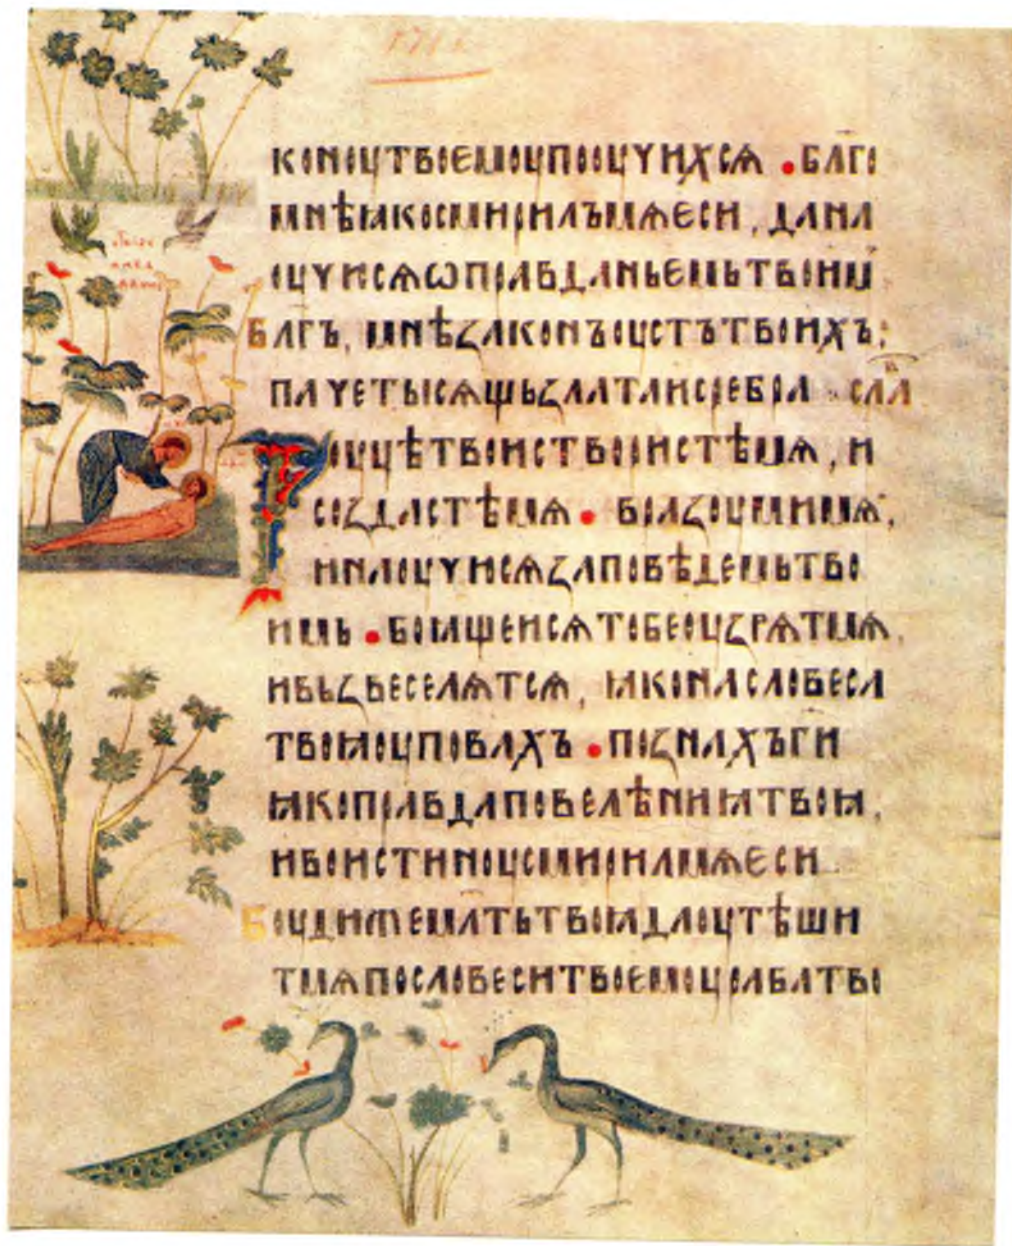 коноу твоемоу пооучихсѧ · бл҃го
мнѣ ꙗко смирилъ мѧ еси, да на
оучисѧ ѡправданьемь твоим
бл҃гъ, мнѣ законъ оустъ твоихъ:
паче тысѧщь злата и сребра · сла
Роуцѣ твои створистѣ мѧ, и
создастѣ мѧ · вразоуми мѧ,
и наоучюсѧ заповѣдемь тво
имь · боꙗщеисѧ тобе оузрѧт мѧ,
и възвеселѧтсѧ, ꙗко на словеса
твоꙗ оуповахъ · познахъ г҃и
ꙗко правда повелѣниꙗ твоꙗ,
и воистиноу смирил мѧ еси
боуди же мл҃ть твоꙗ да оутѣши
т мѧ по словеси твоемоу раба тво